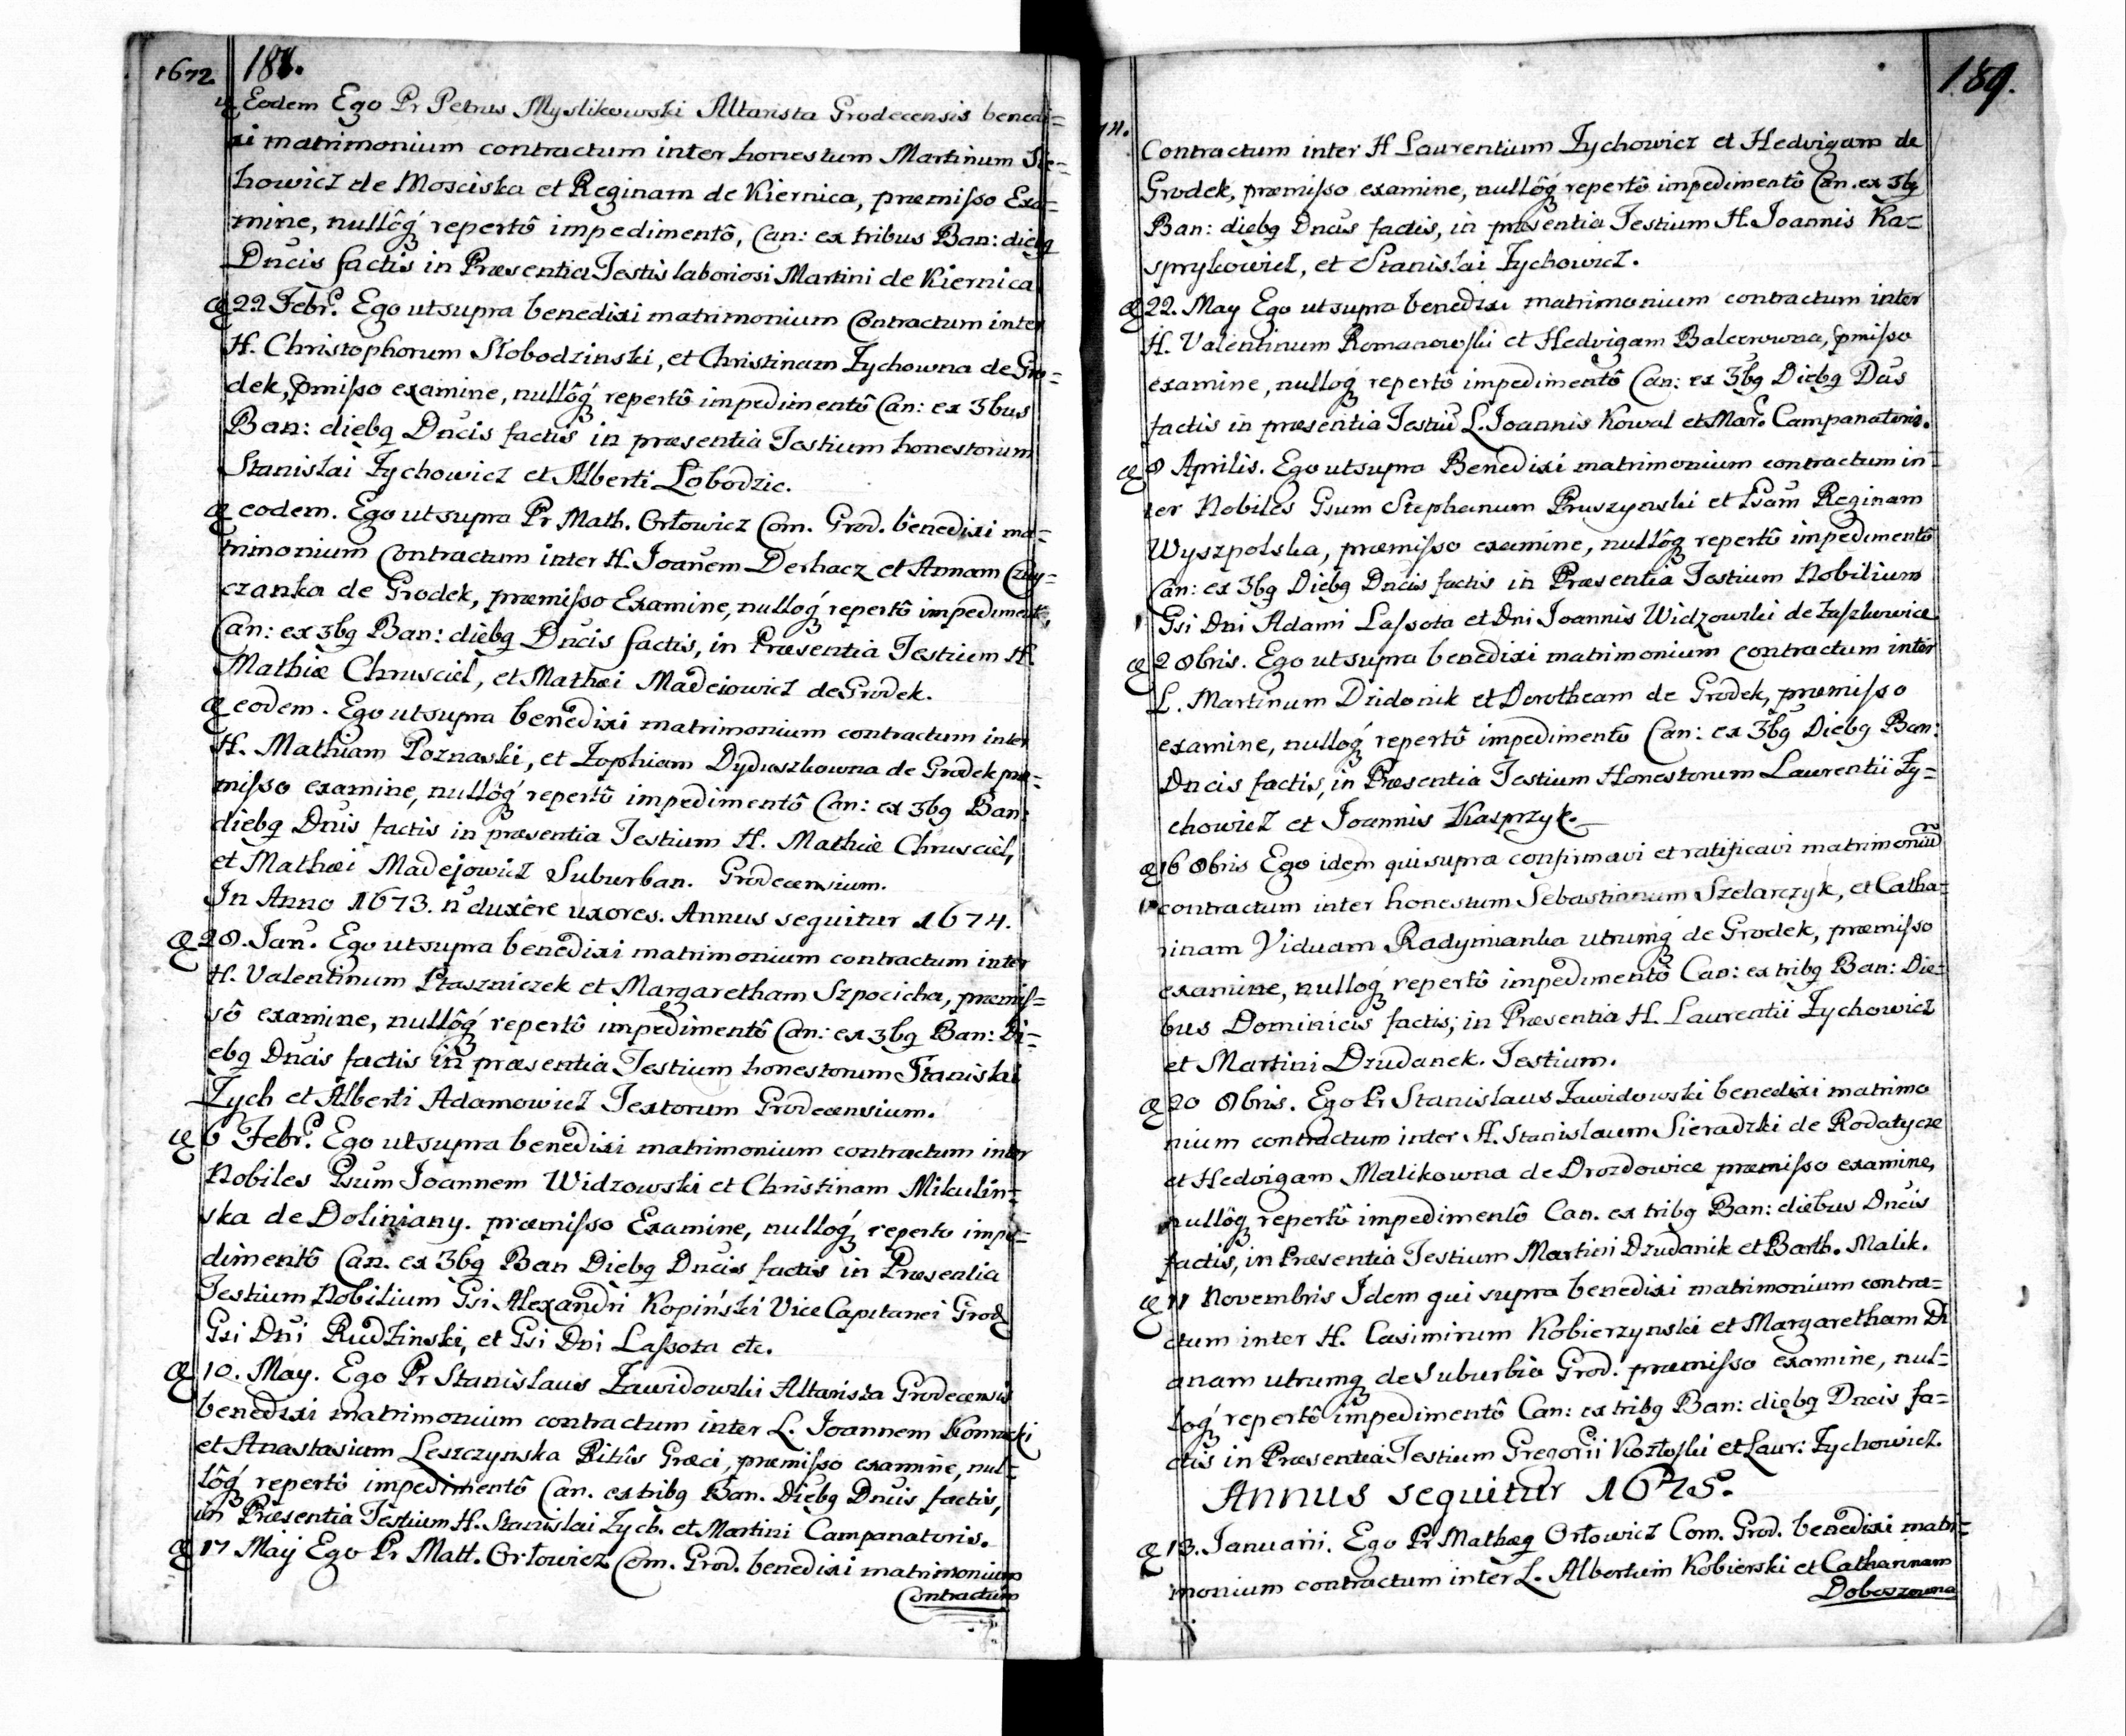 1672. 188.
Eodem Ego Pr Petrus Myslikowski Altarista Grodecensis benedi=
xi matrimonium contractum inter honestum Martinum Ste=
howicz de Mosciska et Reginam de Kiernica, præmisso Exa=
mine, nullôq́ repertô impedimentô, Can: ex tribus Ban: diebq
Dn̄cis factis in Præsentia Testis laboriosi Martini de Kiernica
22 Febr. Ego ut supra benedixi matrimonium Contractum inter
H. Christophorum Słobodzinski, et Christinam Zychowna de Gro=
dek, p̄misso examine, nullôq́ repertô impedimentô Can: ex 3bus
Ban: diebq Dn̄cis factis in præsentia Testium honestorum
Stanislai Zychowicz et Alberti Lobodzic.
eodem. Ego ut supra Pr Math. Orłowicz Com. Grod. benedixi ma=
trimonium Contractum inter H. Joan̄em Derhacz et Annam
czanka de Grodek, præmisso Examine, nulloq́ repertô impedimentô,
Can: ex 3bq Ban: diebq Dn̄cis factis, in Præsentia Testium H.
Mathiæ Chrusciel, et Mathæi Madeiowicz de Grodek.
eodem. Ego ut supra benedixi matrimonium contractum inter
H. Mathiam Poznaski, et Zophiam Dyduszkowna de Grodek præ=
misso examine, nullôq́ repertô impedimentô Can: ex 3bq Ban:
diebq Dn̄is factis in præsentia Testium H. Mathiæ Chrusciel,
et Mathæi Madejowicz Suburban. Grodecensium.
In Anno 1673. n̄ duxêre uxores. Annus sequitur 1674.
28. Jan̄. Ego ut supra benedixi matrimonium contractum inter
H. Valentinum Ptaszniczek et Margaretham Szpocicha, præmis=
sô examine, nullôq́ repertô impedimentô Can: ex 3bq Ban: Di=
ebq Dn̄cis factis in præsentia Testium honestorum Stanislai
Zych et Alberti Adamowicz Textorum Grodecensium.
6 Febr. Ego ut supra benedixi matrimonium contractum inter
Nobiles Gsum Joannem Widzowski et Christinam Mikulin=
ska de Doliniany. præmisso Examine, nulloq́ reperto impe=
dimentô Can. ex 3bq Ban Diebq Dn̄cis factis in Præsentia
Testium Nobilium Gsi Alexandri Kopiński Vice Capitanei Grod
Gsi Dn̄i Rudzinski, et Gsi Dn̄i Lassota etc.
10. May. Ego Pr Stanislaus Zawidowski Altarista Grodecensis
benedixi matrimonium contractum inter L. Joannem
et Anastasiam Leszczynska Ritûs Græci, præmisso examine, nul=
lôq́ repertô impedimentô Can. ex tribq Ban. Diebq Dn̄cis factis,
in Præsentia Testium H. Stanislai Zych. et Martini Campanatoris.
17 Maij Ego Pr Matt. Orłowicz Com. Grod. benedixi matrimonium
Contractum
189.
74.
Contractum inter H Laurentium Zychowicz et Hedvigam de
Grodek, præmisso examine, nullôq́ repertô impedimentô Can. ex 3bq
Ban: diebq Dn̄cis factis, in præsentia Testium H. Joannis Ka=
sprykowicz, et Stanislai Zychowicz.
22. May Ego ut supra benedixi matrimonium contractum inter
H. Valentinum Romanowski et Hedvigam Balcerowna, p̄misso
examine, nulloq́ repertô impedimentô Can: ex 3bq Diebq Dn̄s
factis in præsentia Testiū L. Joannis Kowal et Mar. Campanatoris.
8 Aprilis. Ego ut supra Benedixi matrimonium contractum in=
ter Nobiles Gsum Stephanum Pruszynski et Gsam Reginam
Wyszpolska, præmisso examine, nullôq repertô impedimentô
Can: ex 3bq Diebq Dn̄cis factis in Præsentia Testium Nobilium
Gsi Dni Adami Lassota et Dni Joannis Widzowski de Laszkowice
2 8bris. Ego ut supra benedixi matrimonium Contractum inter
L. Martinum Dzidonik et Dorotheam de Grodek, præmisso
examine, nulloq́ repertô impedimentô Can: ex 3bq Diebq Ban:
Dncis factis, in Præsentia Testium Honestorum Laurentii Zy=
chowicz et Joannis Kasprzyk.
16 8bris Ego idem qui supra confirmavi et ratificavi matrimoniū
contractum inter honestum Sebastianum Szelarczyk, et Catha=
rinam Viduam Radymianka utrumq́ de Grodek, præmisso
examine, nulloq́ repertô impedimentô Can: ex tribq Ban: Die=
bus Dominicis factis; in Præsentia H. Laurentii Zychowicz
et Martini Dzudanek. Testium.
20 8bris. Ego Pr Stanislaus Zawidowski benedixi matrimo
nium contractum inter H. Stanislaum Sieradzki de Rodatycze
et Hedvigam Malikowna de Drozdowice præmisso examine,
nullôq repertô impedimentô Can. ex tribq Ban: diebus Dncis
factis, in Præsentia Testium Martini Dzudanik et Barth. Malik.
11 Novembris Idem qui supra benedixi matrimonium contra=
ctum inter H. Casimirum Kobierzynski et Margaretham Di
anam utrumq de Suburbio Grod. præmisso examine, nul=
loq́ repertô impedimentô Can: ex tribq Ban: diebq Dncis fa=
ctis in Præsentia Testium Gregorii Kozłoski et Laur: Zychowicz.
Annus sequitur 1675.
13. Januarii. Ego Pr Mathæq Orłowicz Com. Grod. benedixi matri=
monium contractum inter L. Albertum Kobierski et Catharinam
Doboszowna